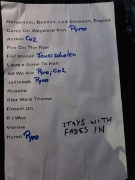 Aerosmith, Beatles, Led Zeppelin, Eagles
Carry On Wayward Son Pyro
Action Co2
Fox On The Run
Fur Immer
Love's Gone To Hell
As We Are Pyro, Co2
Jailbreak Pyro
Rosalie
Star Wars Theme
Dream On
If I Was
Wannabe
Hymn Pyro
STAYS WITH
FADES IN